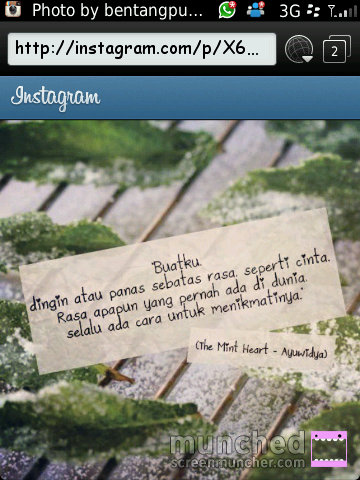 Photo by bentangpu... 3G
http://instagram.com/p/X6... 2
Instagram
Buatku.
dingin atau panas sebatas rasa. seperti cinta.
Rasa apapun yang pernah ada di dunia.
selalu ada cara untuk menikmatinya.
(The Mint Heart - Ayuwidya)
munched
screenmuncher.com